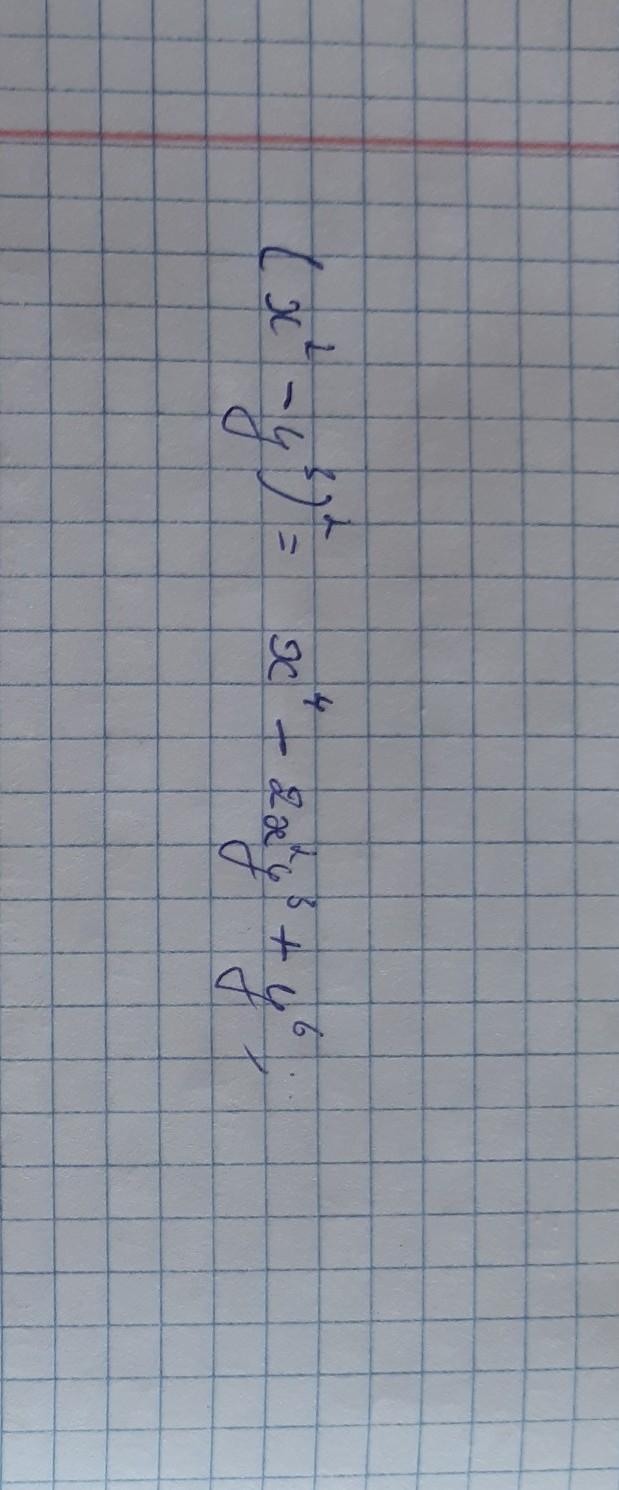 (x² - y³)² = x⁴ - 2x²y³ + y⁶;